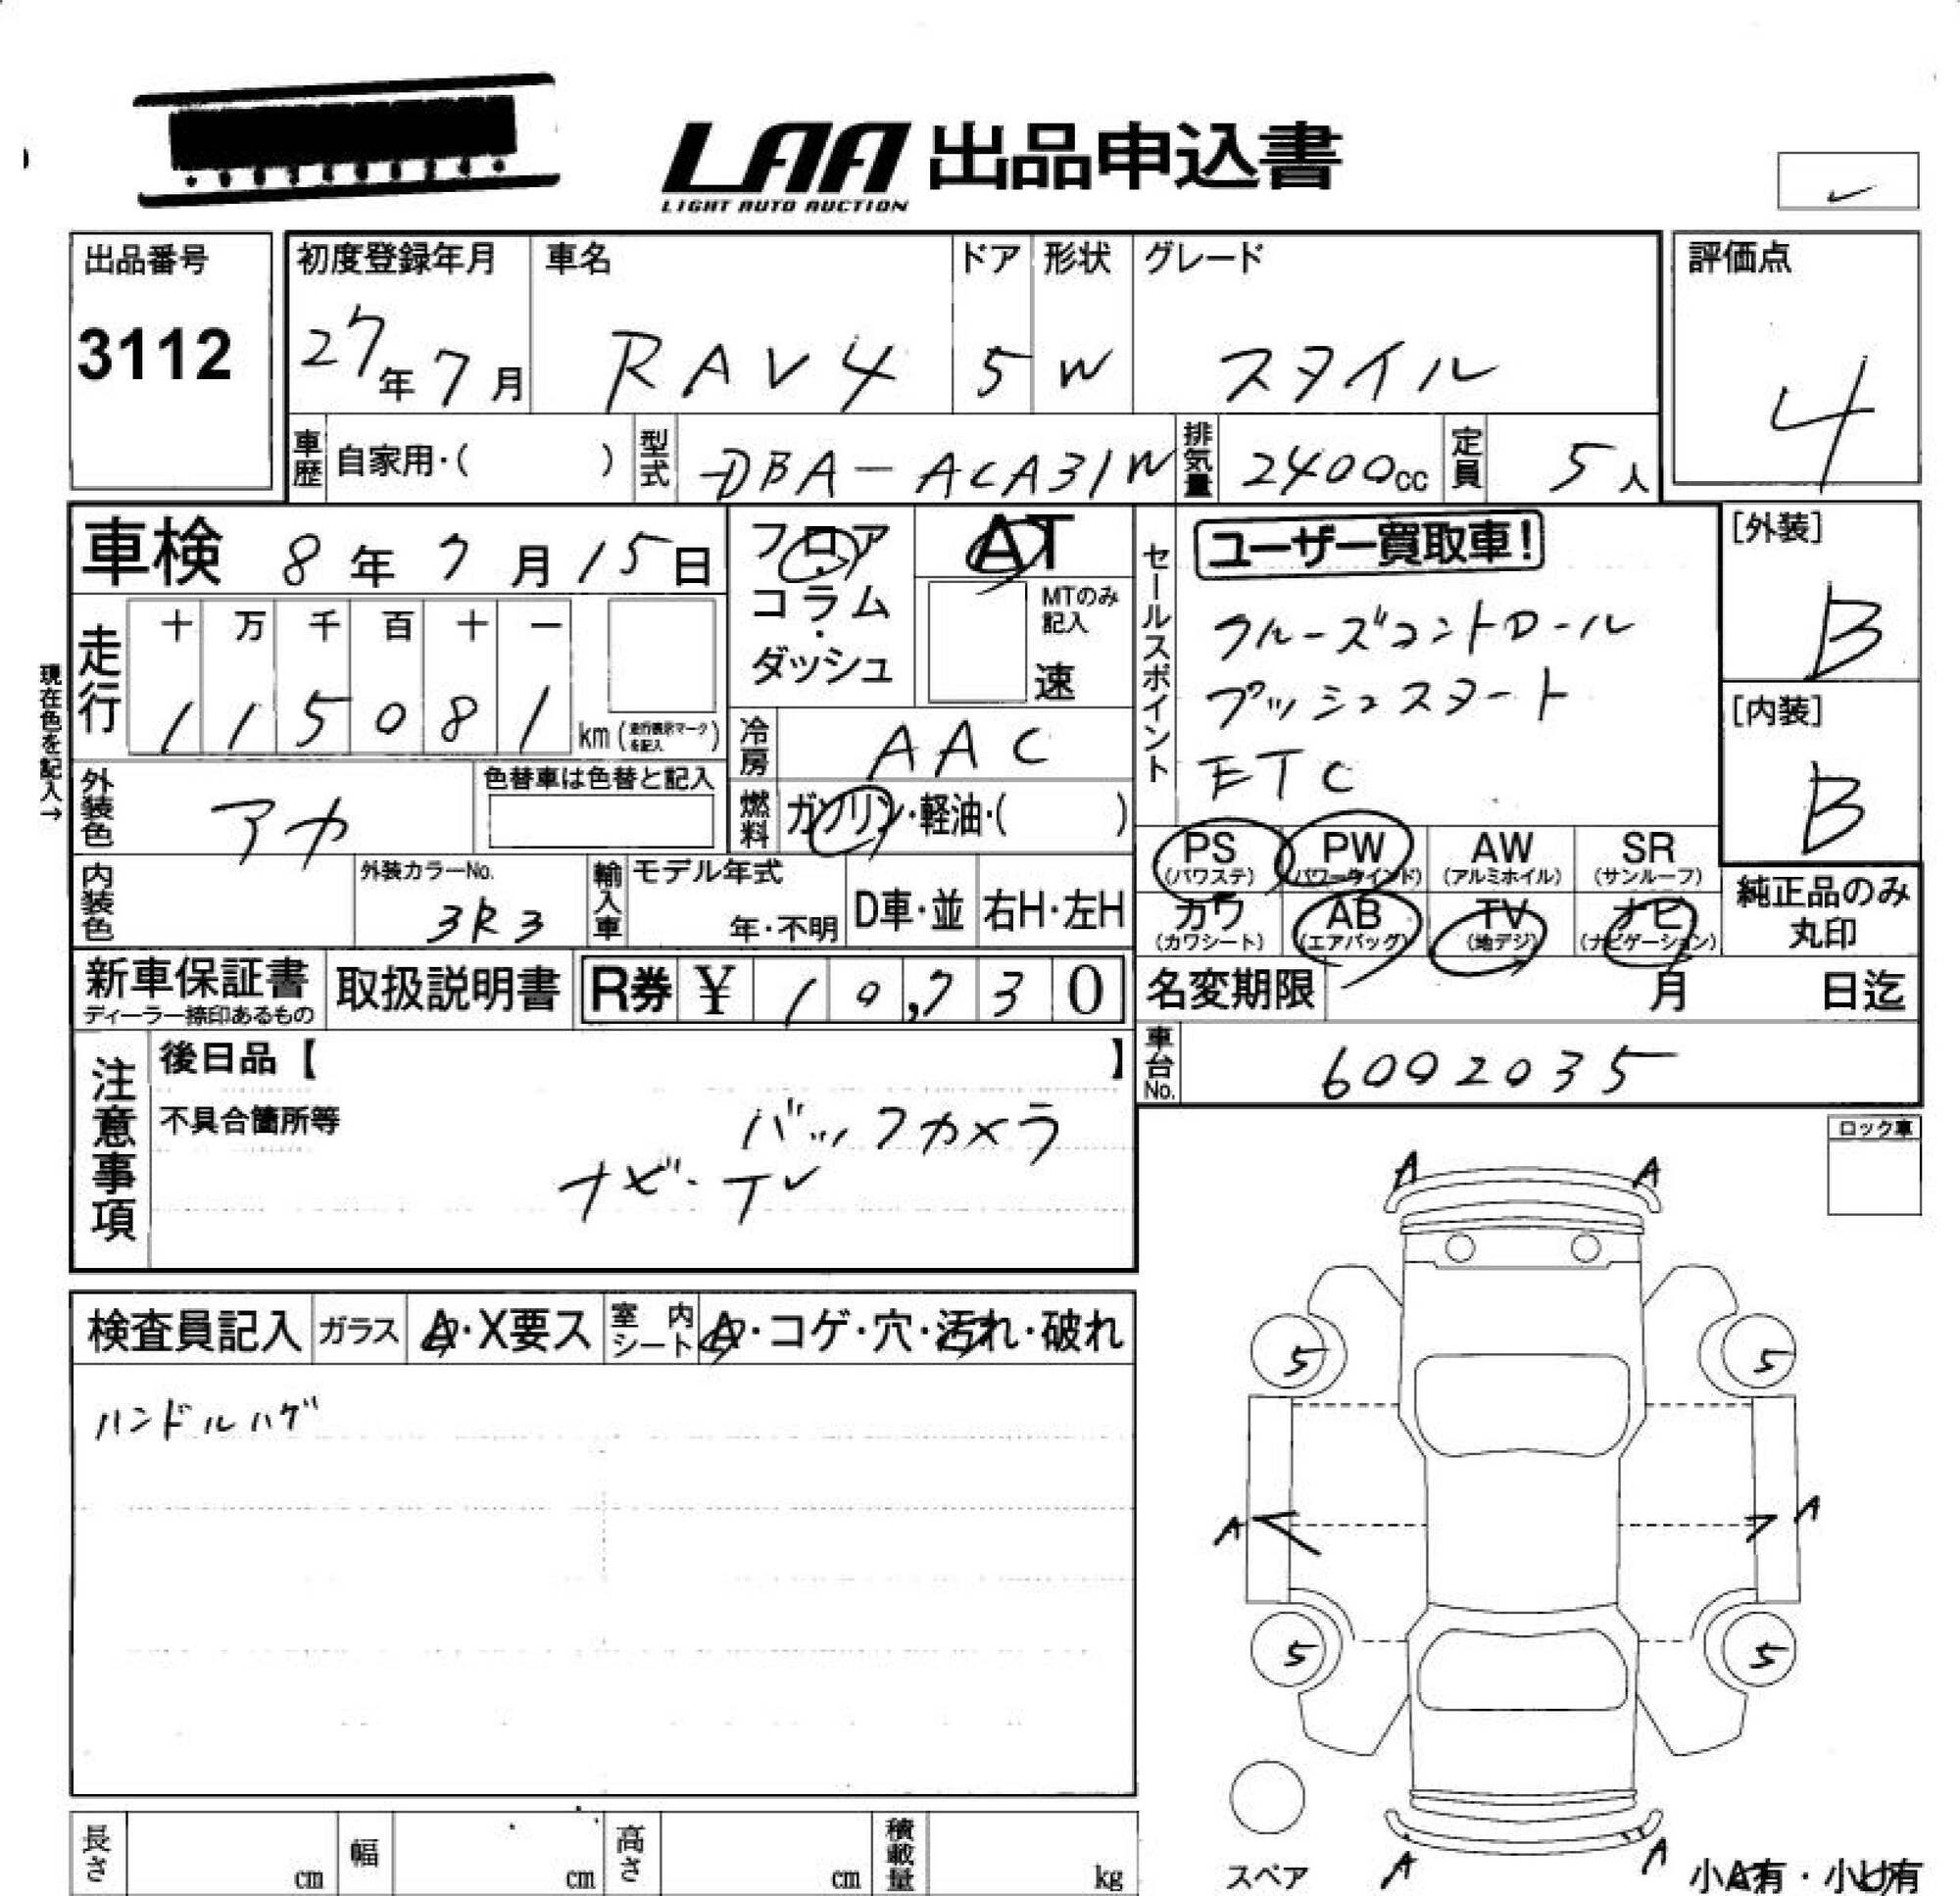 LAA 出品申込書
LIGHT AUTO AUCTION
出品番号
3112
初度登録年月
27年7月
車名
RAV4
ドア
5
形状
W
グレード
スタイル
評価点
4
車歴
自家用・( )
型式
DBA-ACA31W
排気量
2400cc
定員
5人
車検 8年7月15日
フロア
コラム
・
ダッシュ
AT
MTのみ記入
速
セールスポイント
ユーザー買取車!
クルーズコントロール
プッシュスタート
ETC
[外装]
B
[内装]
B
現在色を記入→
走行
十 万 千 百 十 一
1 1 5 0 8 1 km (走行表示マークを記入)
冷房
AAC
外装色
アカ
色替車は色替と記入
燃料
ガソリン・軽油・( )
PS
(パワステ)
PW
(パワーウインド)
AW
(アルミホイル)
SR
(サンルーフ)
カワ
(カワシート)
AB
(エアバッグ)
TV
(地デジ)
ナビ
(ナビゲーション)
純正品のみ
丸印
内装色
外装カラーNo.
3R3
輸入車
モデル年式
年・不明
D車・並
右H・左H
新車保証書
ディーラー捺印あるもの
取扱説明書
R券 ¥ 10,730
名変期限 月 日迄
注意事項
後日品【 】
不具合箇所等
バックカメラ
ナビ・TV
車台No.
6002035
ロック車
検査員記入
ガラス
A・X要ス
室内シート
A・コゲ・穴・汚れ・破れ
ハンドルハゲ
A A
5 5
A A
5 5
A A
スペア
小A有・小U有
長さ cm
幅 cm
高さ cm
積載量 kg